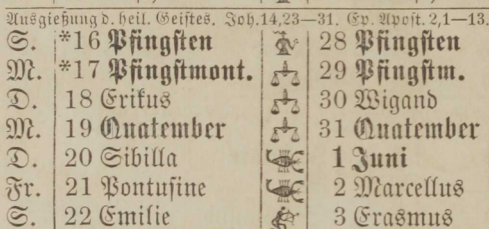 Ausgießung d. heil. Geistes. Joh. 14,23—31. Ep. Apost. 2,1—13.
S. *16 Pfingsten 28 Pfingsten
M. *17 Pfingstmont. 29 Pfingstm.
D. 18 Erikus 30 Wigand
M. 19 Quatember 31 Quatember
D. 20 Sibilla 1 Juni
Fr. 21 Pontusine 2 Marcellus
S. 22 Emilie 3 Erasmus